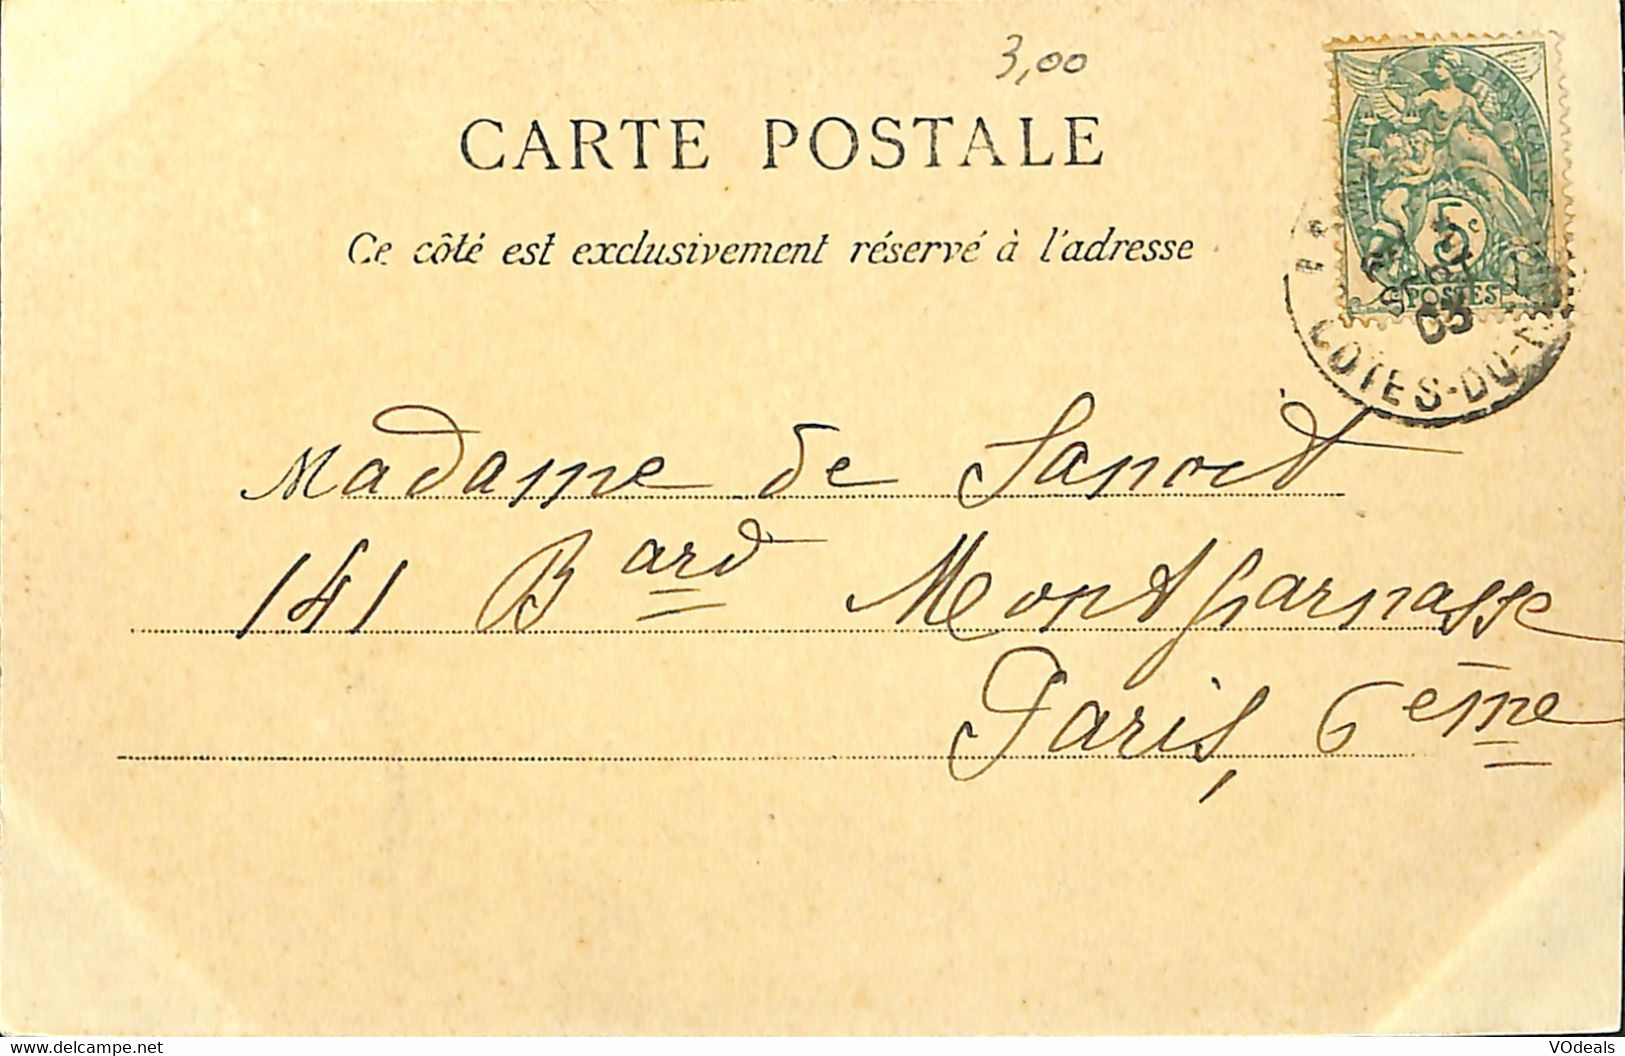 3,00
CARTE POSTALE
Ce côté est exclusivement réservé à l'adresse
5c
POSTES
03
COTES-DU-N
Madame de
141 Bard Montparnasse
Paris, 6ème
www.delcampe.net
VOdeals